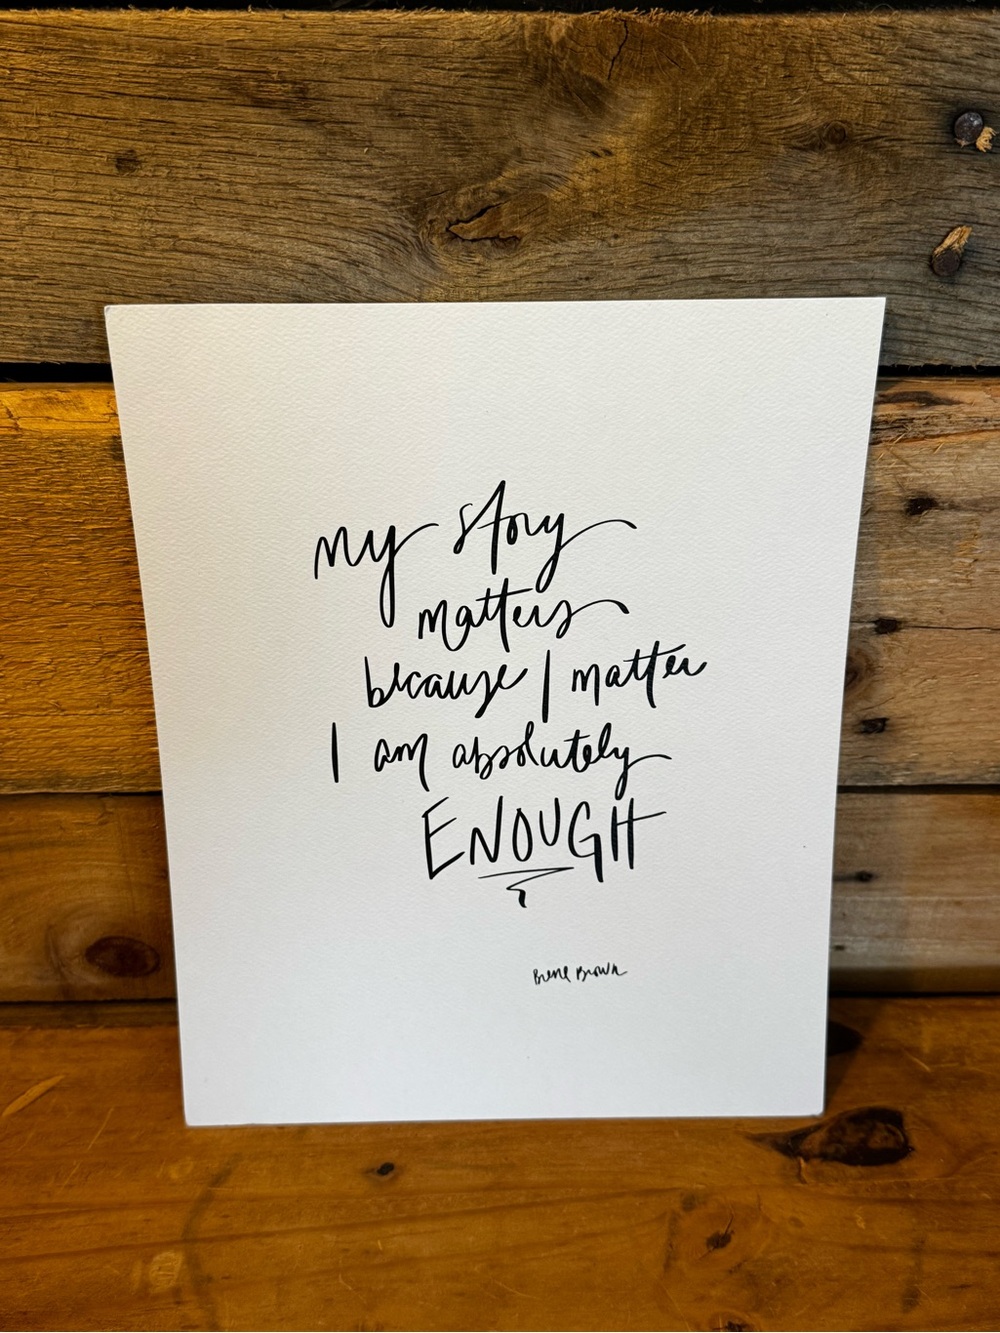 my story
matters
because I matter
I am absolutely
ENOUGH
Brene Brown